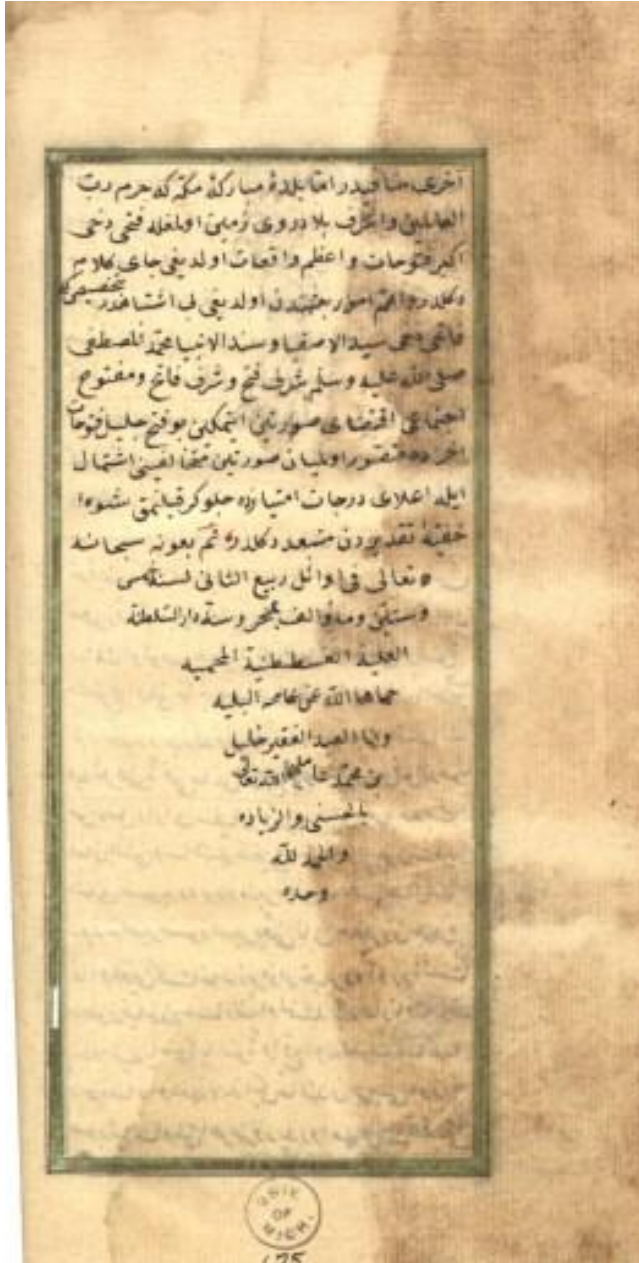 اخری منافیدر اما بلدهٔ مبارکهٔ مکه که حرم رب
العالمین واشرف بلاد روی زمین اولمغله فتحی دخی
اکبر فتوحات واعظم واقعات اولدیغی جای کلام
دکلدر واهم امور جمله‌دن اولدیغی بی اشتباهدر تخصیص که
فاتحی اعنی سید الاصفیا وسند الانبیا محمد المصطفی
صلی الله علیه وسلم شرف فتح وشرف فاتح ومفتوح
اجتماعی اقتضای صورتین ایتمکین بو فتح جلیل فتوحات
اخراده متصور اولمیان صورتین متخالفینی اشتمال
ایله اعلای درجات امتیازده جلوکر قیلنمق شیوهٔ
خفیهٔ تقدیردن مستبعد دکلدر تم بعونه سبحانه
وتعالی فی اوائل ربیع الثانی لسنة خمس
وستین ومأة والف بمحروسة دار السلطنة
العلیة القسطنطنیة المحمیه
حماها الله عن عامة البلیه
وانا العبد الفقیر خلیل
بن محمد عاملهما الله تعالی
بالحسنی والزیاده
والحمد لله
وحده
UNIV.
OF
MICH.
175